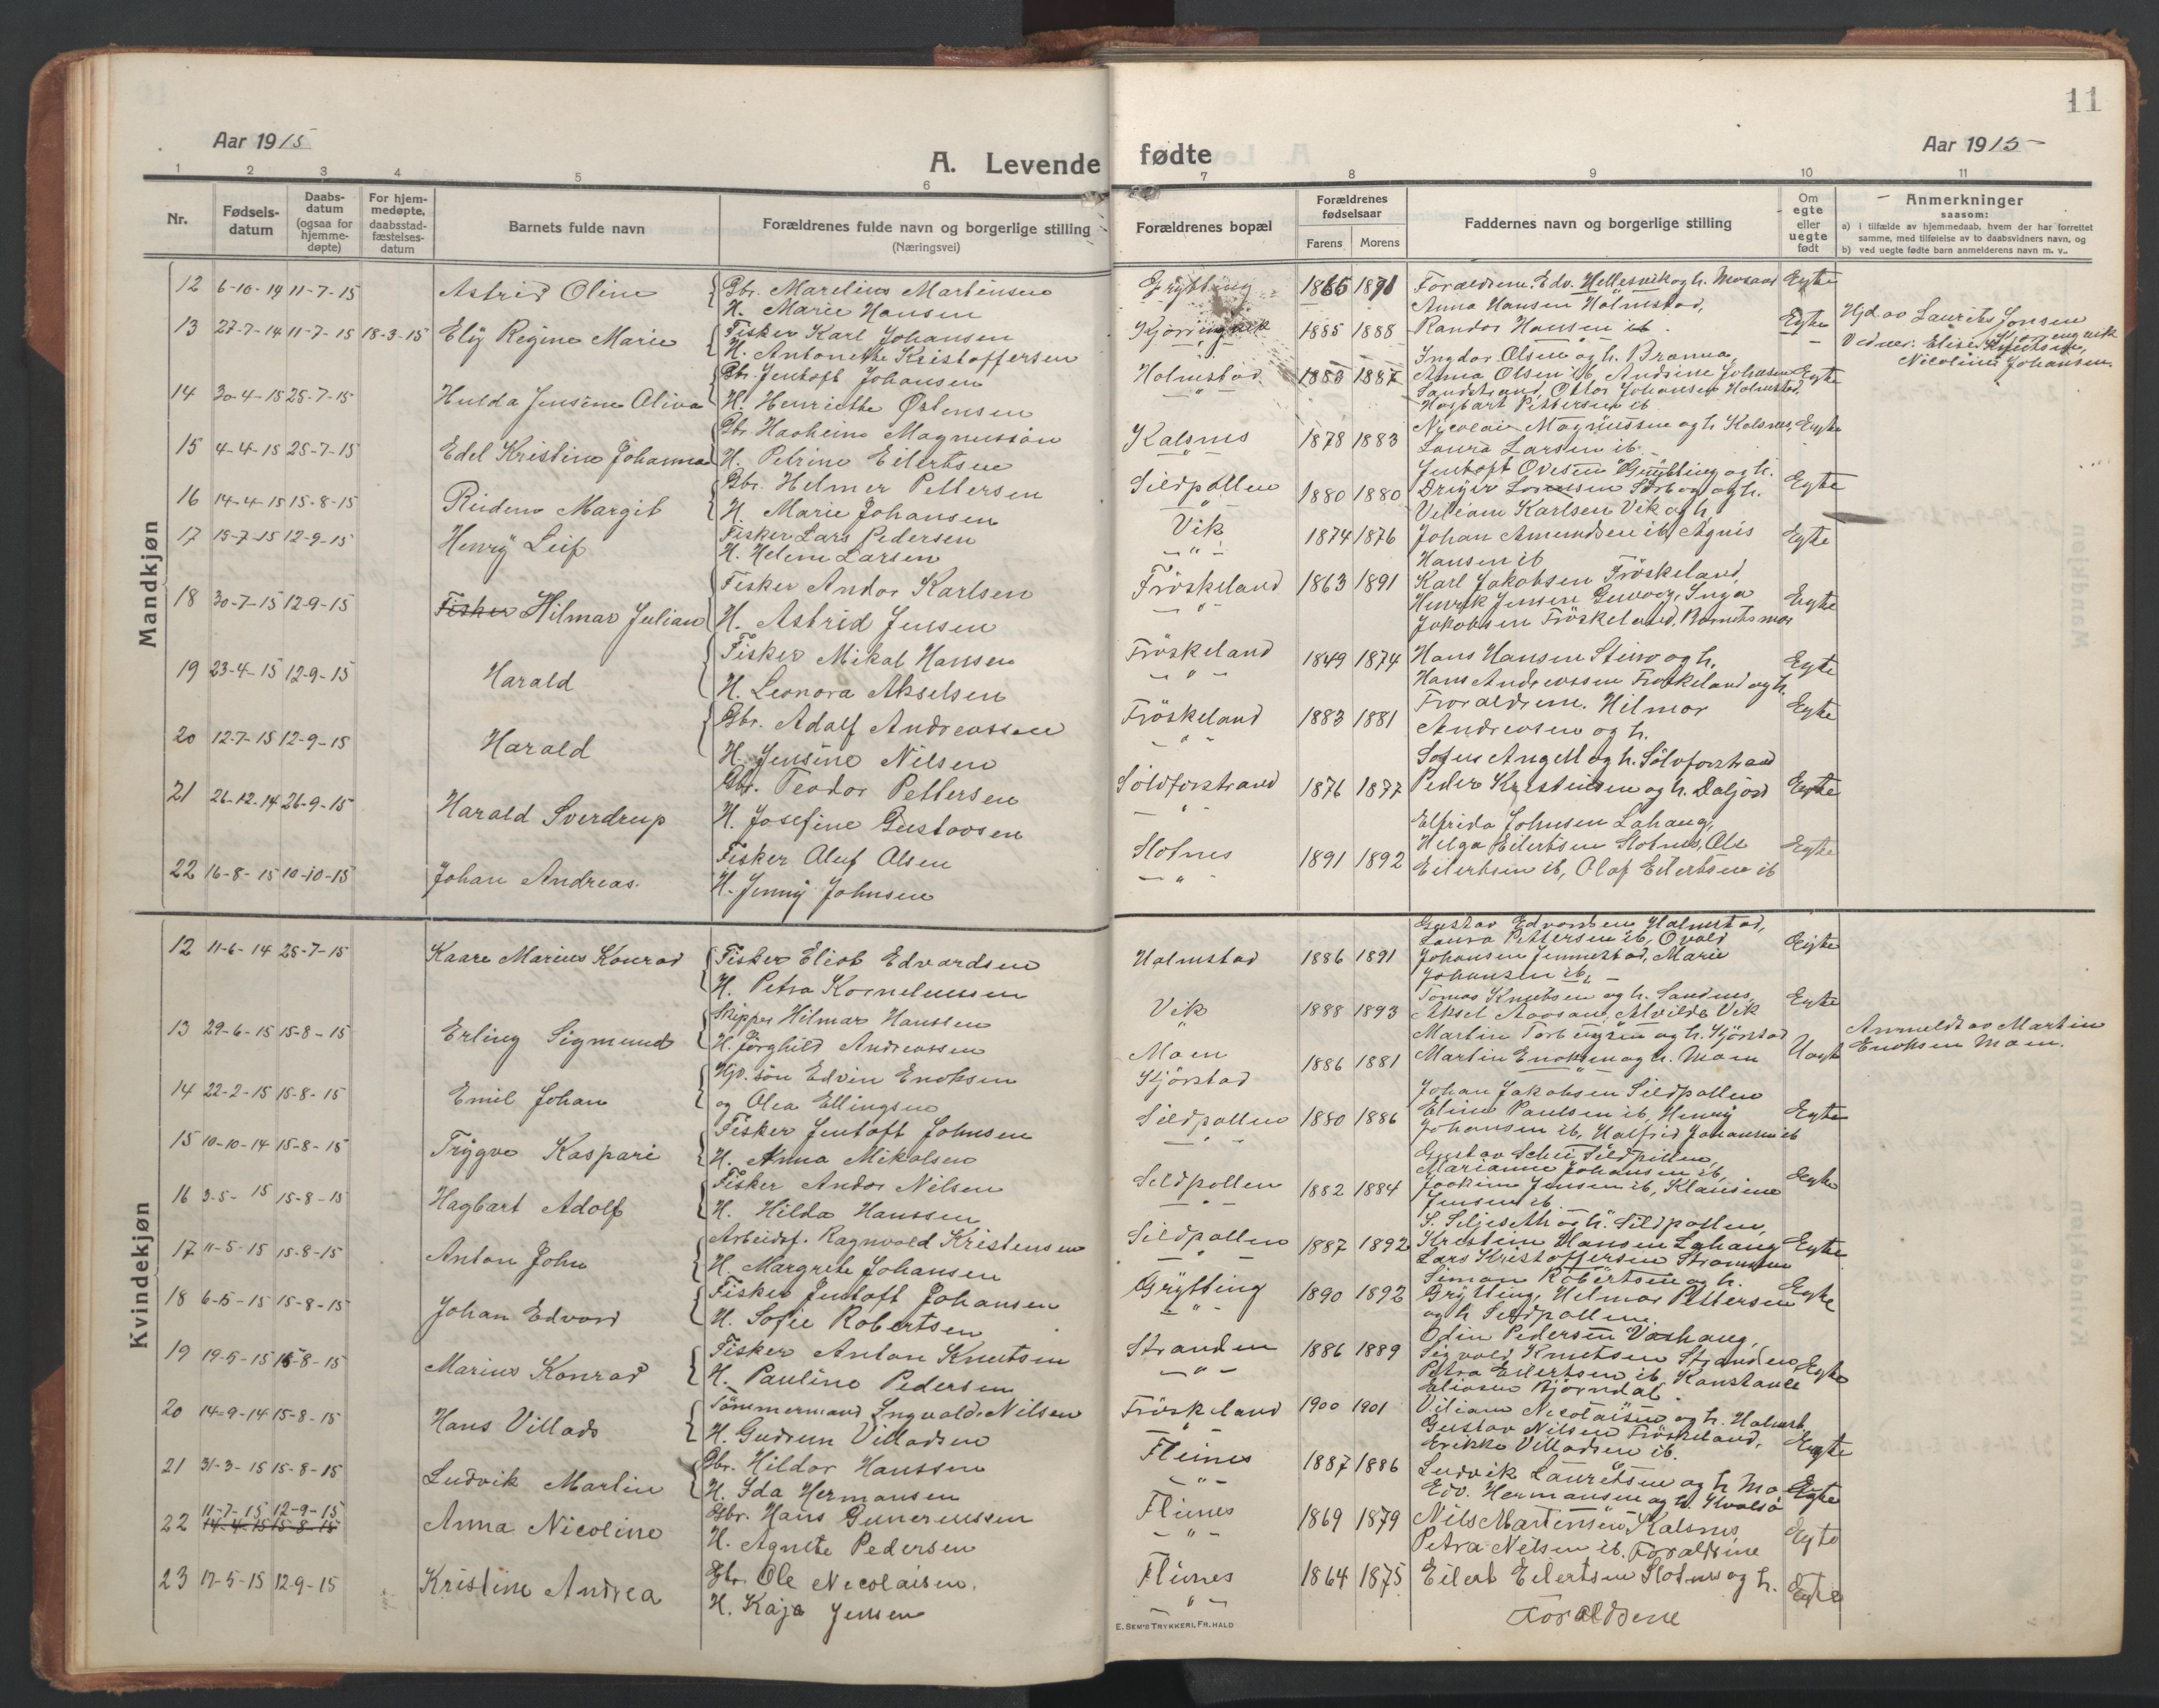 11
Aar 1915
A. Levende fødte
Aar 1915
1 2 3 4 5 6 7 8 9 10 11
Nr.
Fødsels-
datum
Daabs-
datum
(ogsaa for
hjemme-
døpte)
For hjem-
medøpte,
daabsstad-
fæstelses-
datum
Barnets fulde navn
Forældrenes fulde navn og borgerlige stilling
(Næringsvei)
Forældrenes bopæl
Forældrenes
fødselsaar
Farens Morens
Faddernes navn og borgerlige stilling
Om
egte
eller
uegte
født
Anmerkninger
saasom:
a) i tilfælde av hjemmedaab, hvem der har forrettet
samme, med tilføielse av to daabsvidners navn, og
b) ved uegte fødte barn anmelderens navn m. v..
Mandkjøn
12 6-10-14 11-7-15 Astrid Oline
Gbr. Marelius Martinsen
H. Marie Hansen
Grytting 1865 1871
Foraldrene, Edv. Hellesvik og h.
Anna Hansen Holmstad,
Egte
13 27-7-14 11-7-15 18-3-15 Elly Regine Marie
Fisker Karl Johansen
H. Antonette Kristoffersen
1885 1888
Randor Hansen ib.
Ingdor Olsen og h.
Egte
Hjd av Laurits Jensen
Vidner: Elise Knutsen,
Nicoline Johansen.
14 30-4-15 25-7-15 Hulda Jensine Oliva
Gbr. Jentoft Johansen
H. Henriette Østensen
Holmstad 1883 1887
Anna Olsen ib. Andrine Johansen
Sandstrand, Ottar Johansen Holmstad,
Hagbart Pettersen ib
Egte
15 4-4-15 25-7-15 Edel Kristine Johanna
Gbr. Magnussen
H. Petrine Eilertsen
Kalsnes 1878 1883
Nicolai Magnussen og h. Kalsnes,
Laura Larsen ib.
Egte
16 14-4-15 15-8-15 Margit
Gbr. Helmer Pettersen
H. Marie Johansen
Sildpollen 1880 1880
Jentoft Ovesen Grytting og h.
Egte
17 15-7-15 12-9-15 Henry Leif
Fisker Lars Pedersen
H. Helene Larsen
Vik 1874 1876
Viliam Karlsen Vik og h
Johan Amundsen ib, Agnis
Hansen ib
Egte
18 30-7-15 12-9-15 Fisker Hilmar Julian
Fisker Andor Karlsen
H. Astrid Jensen
Fröskeland 1863 1891
Karl Jakobsen Fröskeland,
Henrik Jensen, Inga
Jakobsen Fröskeland, Barnets mor
Egte
19 23-4-15 12-9-15 Harald
Fisker Mikal Hansen
H. Leonora Akselsen
Fröskeland 1849 1874
Hans Hansen Stein og h.
Hans Andreassen Froskeland og h.
Egte
20 12-7-15 12-9-15 Harald
Gbr. Adolf Andreassen
H. Jensine Nilsen
Fröskeland 1883 1881
Foraldrene. Hilmar
Andreasen og h.
Egte
21 26-12-14 26-9-15 Harald Sverdrup
Gbr. Teodor Pettersen
H. Josefine Gustavsen
1876 1877
Sofus Angell og h. Sölvforstrand
Peder Kristensen og h. Daljord
Egte
22 16-8-15 10-10-15 Johan Andreas.
Fisker Oluf Olsen
H. Jenny Johnsen
Slotnes 1891 1892
Elfrida Johnsen Lahaug,
Helga Eilertsen Slotnes, Ole
Eilertsen ib, Olaf Eilertsen ib
Egte
Kvindekjøn
12 11-6-14 25-7-15 Kaare Marius Konrad
Fisker Eliot Edvardsen
H. Petra Korneliussen
Holmstad 1886 1891
Gustav Edvardsen Holmstad,
Laura Pettersen ib, Ovald
Johansen Jennestad, Marie
Johansen ib,
Egte
13 29-6-15 15-8-15 Erling Sigmund
Skipper Hilmar Hanssen
H. Jörghild Andreassen
Vik 1888 1893
Tomas Knutsen og h. Sandnes,
Aksel Aovsan, Alvilde Vik
Egte
14 22-2-15 15-8-15 Emil Johan
Gjv. sön Edvin Enoksen
og Olea Ellingsen
Moen
Kjörstad 1886 1881
Martin Torbergsen og h. Kjörstad
Martin Enoksen og h. Moen
Uegte
Anmeldt av Martin
Enoksen Moen.
15 10-10-14 15-8-15 Trygve Kaspari
Fisker Jentoft Johnsen
H. Anna Mikalsen
Sildpollen 1880 1886
Johan Jakobsen Sildpollen
Eline Paulsen ib, Henny
Johansen ib, Halfrid Johansen ib
Egte
16 3-5-15 15-8-15 Hagbart Adolf
Fisker Andor Nilsen
H. Hilda Hanssen
Sildpollen 1882 1884
Gustav Schei, Sildpollen
Marianne Johansen ib,
Joakim Jensen ib, Klausine
Jensen ib
Egte
17 11-5-15 15-8-15 Anton John
Arbeidsf. Ragnvald Kristensen
H. Margrete Johansen
Sildpollen 1887 1892
S. Seljeseth og h. Sildpollen,
Kristine Hansen Lahaug
Lars Kristoffersen
Egte
18 6-5-15 15-8-15 Johan Edvard
Fisker Jentoft Johansen
H. Sofie Robertsen
Grytting 1890 1892
Simon Robertsen og h.
Grytting, Helmar Pettersen
og h Sildpollen.
Egte
19 19-5-15 15-8-15 Marius Konrad
Fisker Anton Knutsen
H. Pauline Pedersen
Stranden 1886 1889
Odin Pedersen Vashaug,
Sigvald Knutsen Stranden
Petra Eilertsen ib, Konstanse
Eliasen Björndal.
Egte
20 14-9-14 15-8-15 Hans Villads
Tömmermand Ingvald Nilsen
H. Gudrun Villadsen
Fröskeland 1900 1901
Viliam Nicolaisen og h. Holmst.
Gustav Nilsen Fröskeland,
Erikke Villadsen ib.
Egte
21 31-3-15 15-8-15 Ludvik Martin
Gbr. Hildor Hanssen
H. Ida Hermansen
Fleines 1887 1886
Ludvik Lauritsen og h Mo
Edv. Hermansen og h. Kvalsö
Egte
22 11-7-15 12-9-15 Anna Nicoline
14-4-15 15-8-15
Gbr. Hans Gunerussen
H. Agnete Pedersen
Fleines 1869 1879
Nils Martensen Kalsnes
Petra Nilsen ib. Foraldrene
Egte
23 17-5-15 12-9-15 Kristine Andrea
Gbr. Ole Nicolaisen.
H. Kaja Jensen
Fleines 1864 1875
Eilert Eilertsen Slotnes og h.
Foraldrene
Egte
E. SEM'S TRYKKERI, FR.HALD